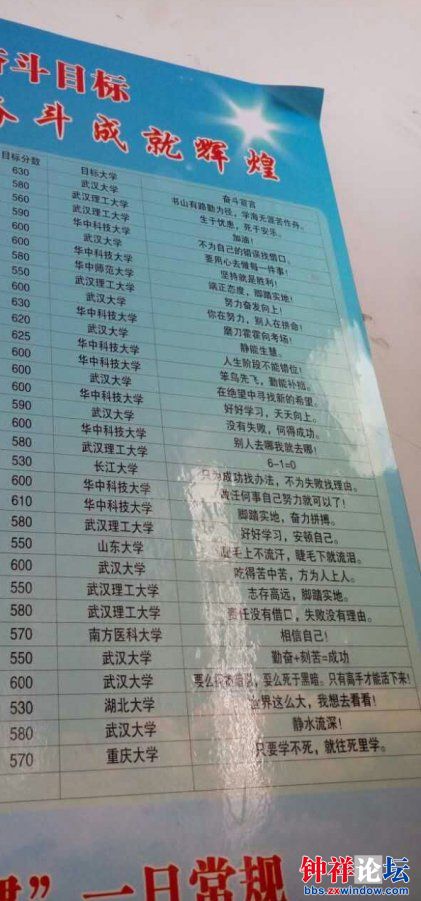 斗目标
奋斗成就辉煌
目标分数 目标大学 奋斗宣言
630 武汉大学 书山有路勤为径，学海无涯苦作舟。
580 武汉理工大学 生于忧患，死于安乐。
560 武汉理工大学 加油！
590 华中科技大学 不为自己的错误找借口。
600 武汉大学 要用心去做每一件事！
600 华中科技大学 坚持就是胜利！
580 华中师范大学 端正态度，脚踏实地！
550 武汉理工大学 努力奋发向上！
600 武汉大学 你在努力，别人在拼命！
630 华中科技大学 磨刀霍霍向考场！
620 武汉大学 静能生慧。
625 华中科技大学 人生阶段不能错位！
600 华中科技大学 笨鸟先飞，勤能补拙。
600 武汉大学 在绝望中寻找新的希望。
600 华中科技大学 好好学习，天天向上。
590 武汉大学 没有失败，何得成功。
600 华中科技大学 别人去哪我就去哪！
580 武汉理工大学 6-1=0
530 长江大学 只为成功找办法，不为失败找理由。
600 华中科技大学 做任何事自己努力就可以了！
610 华中科技大学 脚踏实地，奋力拼搏。
580 武汉理工大学 好好学习，安顿自己。
550 山东大学 眉毛上不流汗，睫毛下就流泪。
600 武汉大学 吃得苦中苦，方为人上人。
550 武汉理工大学 志存高远，脚踏实地。
580 武汉理工大学 责任没有借口，失败没有理由。
570 南方医科大学 相信自己！
550 武汉大学 勤奋+刻苦=成功
600 武汉大学 要么 ，至么死于黑暗。只有高手才能活下来！
530 湖北大学 世界这么大，我想去看看！
580 武汉大学 静水流深！
570 重庆大学 只要学不死，就往死里学。
”一日常规
钟祥论坛
bbs.zxwindow.com